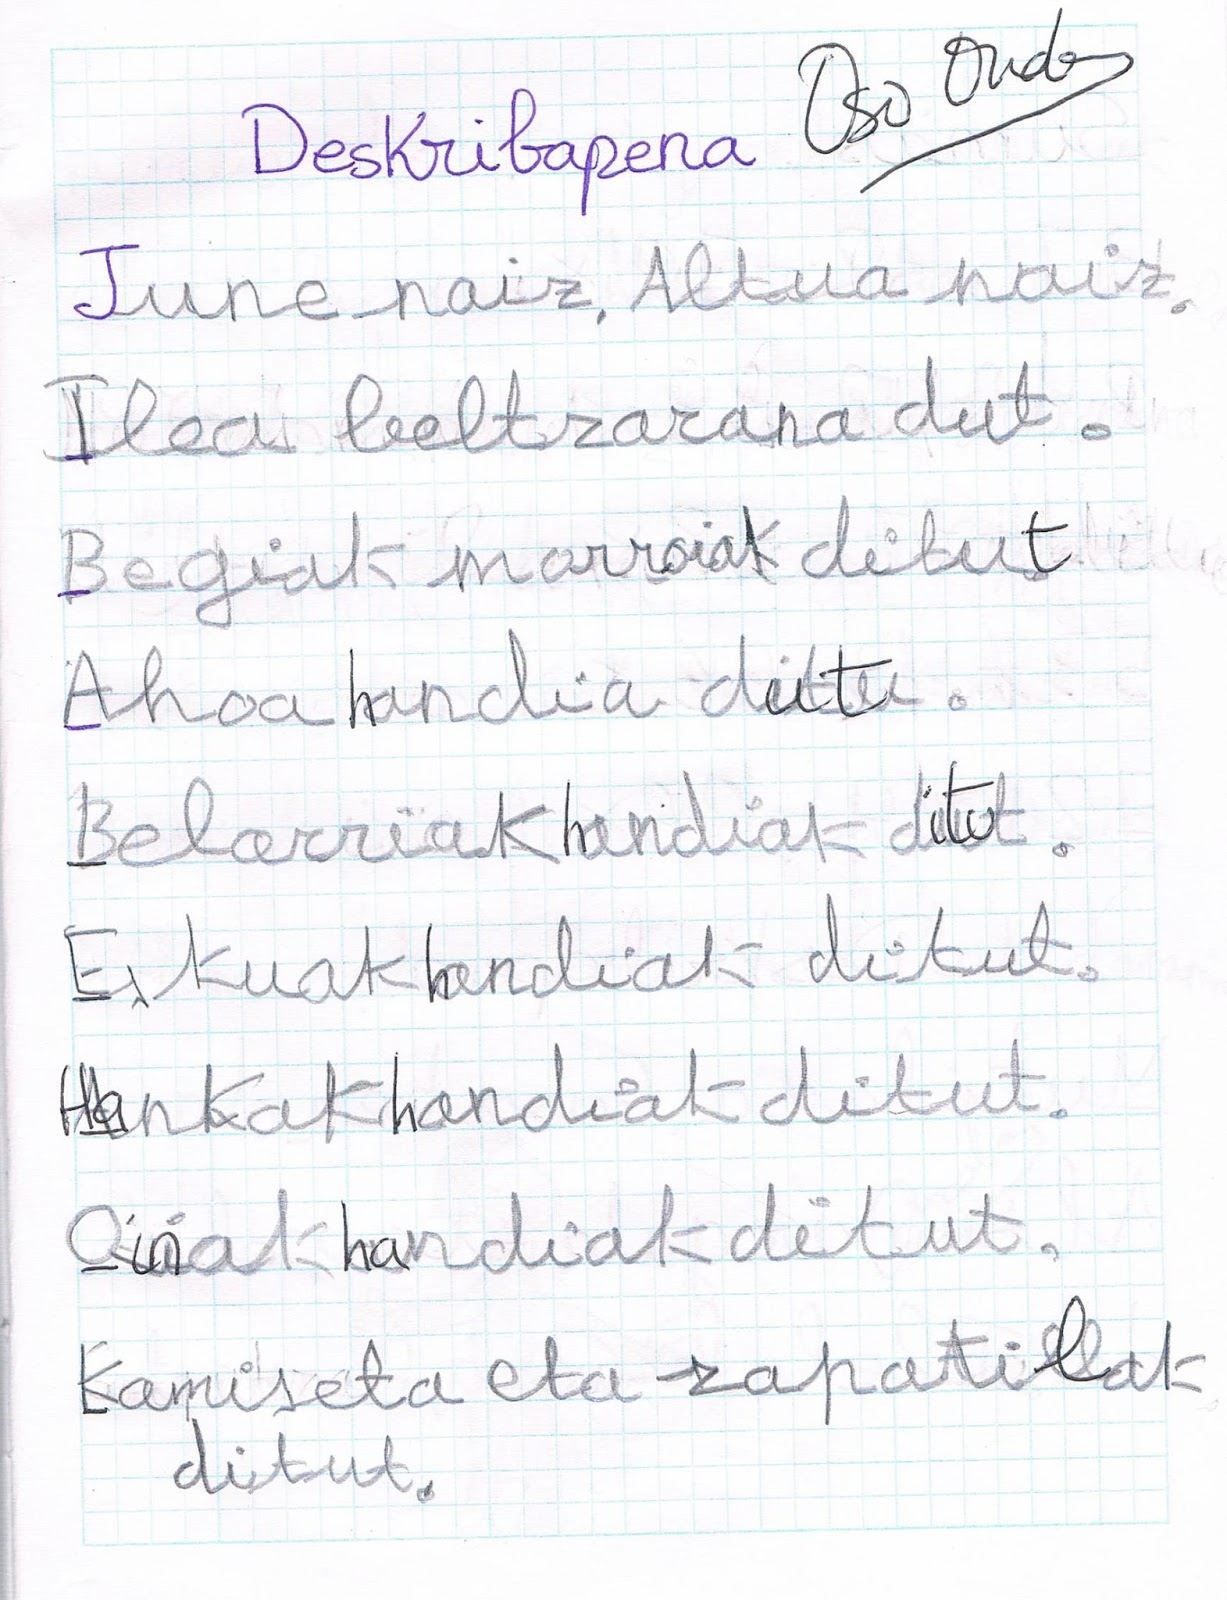 Deskribapena Oso Ondo
June naiz. Altua naiz.
Ilea beltzarana dut.
Begiak marroiak ditut
Ahoa handia
Belarriak handiak ditut.
Eskuak handiak ditut.
Hankak handiak ditut.
Oinak handiak ditut.
Kamiseta eta zapatillak
ditut.